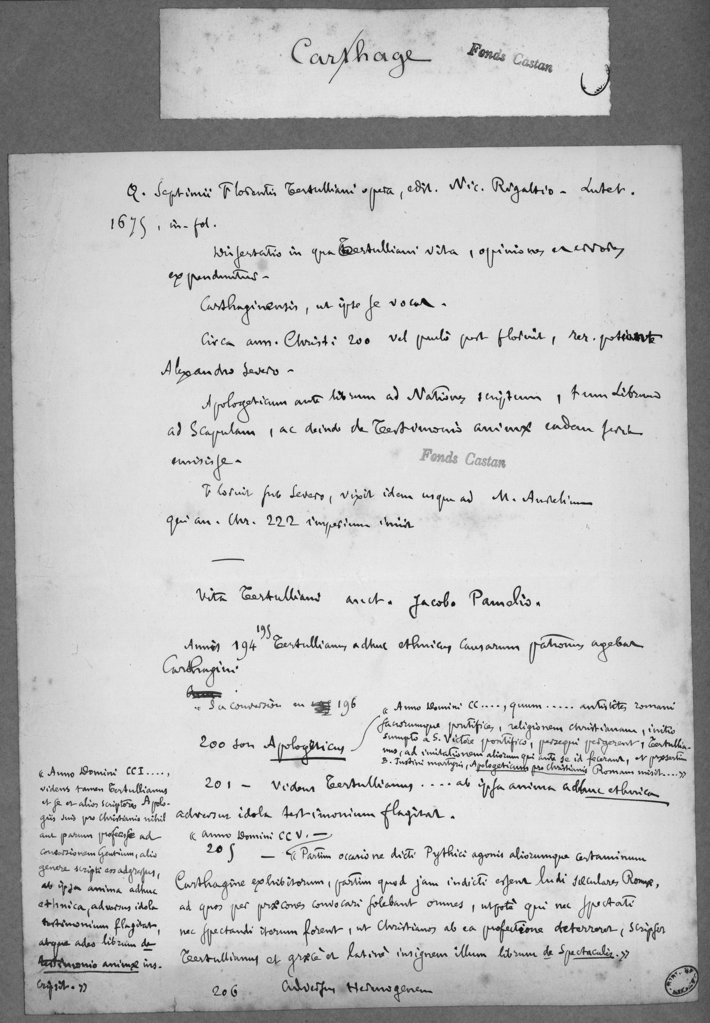 Carthage
Fonds Castan
Q. Septimii Florentis Tertulliani opera, edit. Nic. Rigaltio – Lutet.
1675, in-fol.
Dissertatio in qua Tertulliani vita, opiniones et errores
expenduntur –
Carthaginensis, ut ipse se vocat.
Circa ann. Christi 200 vel paulo post floruit, rer. potiente
Alexandro Severo –
Apologeticum ante librum ad Nationes scriptum, tum Librum
ad Scapulam, ac deinde de Testimonio animæ eadem ferre
emisisse –
Fonds Castan
Floruit sub Severo, vixit idem usque ad M. Aurelium
qui an. Chr. 222 imperium iniit
Vita Tertulliani auct. Jacobo Pamelio.
Annis 194 195 Tertullianus adhuc ethnicus causarum patronus agebat
Carthagini
" Sa conversion en 196
200 son Apologeticus
« Anno Domini CC...., quum ..... antistites romani
sacrorumque pontifices, religionem christianam, initio
sumpto a S. Victore pontifice, persequi pergerent, Tertullia-
nus, ad imitationem aliorum qui ante se id fecerant, et præsertim
B. Justini martyris, Apologeticum pro christianis Romam misit....»
201 – Videns Tertullianus .... ab ipsa anima adhuc ethnica
adversus idola testimonium flagitat.
« anno Domini CCV. –
205 – « Partim occasione dicti Pythici agonis aliorumque certaminum
Carthagine exhibitorum, partim quod jam indicti essent ludi sæculares Romæ,
ad quos per præcones convocari solebant omnes, utpote qui nec spectati
nec spectandi iterum forent, ut Christianos ab ea profectione deterreret, scripsit
Tertullianus et græce et latine insignem illum librum de Spectaculis.»
206 adversus Hermogenem
« Anno Domini CCI....,
videns tamen Tertullianus
et se et alios scriptores Apolo-
giis suis pro christianis nihil
aut parum profecisse ad
conversionem Gentium, alio
genere scripti est adgressus,
ab ipsa anima adhuc
ethnica, adversus idola
testimonium flagitat,
atque adeo librum de
testimonio animæ ins-
cripsit.»